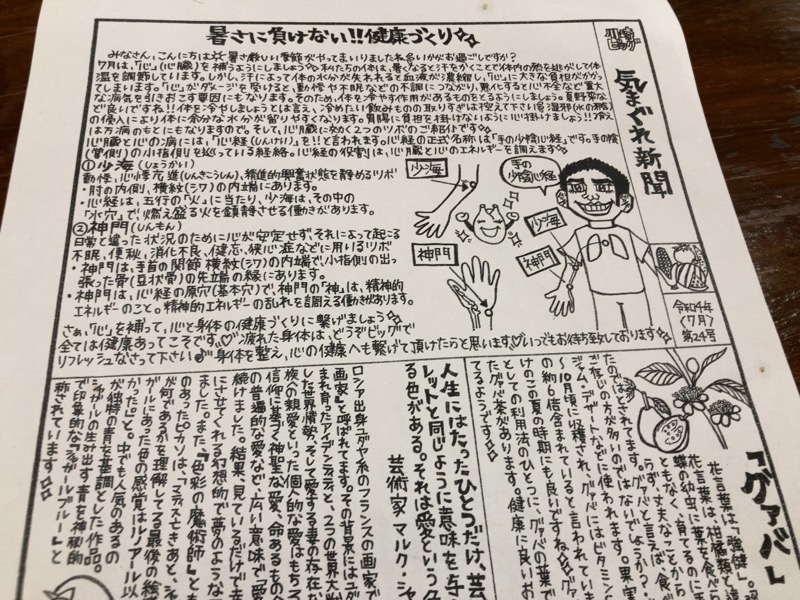 暑さに負けない!!健康づくり☆
みなさん、こんにちは☆ 暑さ厳しい季節がやってまいりましたね🌀いかがお過ごしですか?
7月は、「心」(心臓)を補うようにしましょう☆私たちの体は、暑くなると汗をかくことで体内の熱を逃がして体
温を調節しています。しかし、汗によって体の水分が失われると血液が濃縮し、「心」に大きな負担がかかっ
てしまいます。「心」がダメージを受けると、動悸や不眠などの不調につながり、悪化すると心不全など重大
な病気を引き起こす要因にもなります。そのため、体を冷やす作用があるものをとるようにしましょう。夏野菜な
ど良いですね!!体を冷やしましょうとは言え、冷めたい飲みもの取りすぎは控えて下さい
の侵入により体に余分な水分が留りやすくなります。胃腸に負担を掛けないように心掛けましょう!!冷え
は万病のもとにもなりますので。そして、心臓に効く2つのツボのご紹介です☆
心臓と心の病には、「心経(しんけい)」を!!と言われます。心経の正式名称は「手の少陰心経」です。手の陰
(掌側)の小指側を巡っている経絡。心経の役割は、心臓と心のエネルギーを調えます☆
①少海(しょうかい)
動悸、心悸亢進(しんきこうしん)、精進的興奮状態を静めるツボ
・肘の内側、横紋(シワ)の内端にあります。
・心経は、五行の「火」に当たり、少海は、その中の
「水穴」で、燃え盛る火を鎮静させる働きがあります。
②神門(しんもん)
日常と違った状況のために心が安定せず、それによって起こる
不眠、便秘、消化不良、健忘、狭心症などに用いるツボ
・神門は、手首の関節 横紋(シワ)の内端で、小指側の出っ
張った骨(豆状骨)の先端の縁にあります。
・神門は、心経の原穴(基本穴)で、神門の「神」は、精神的
エネルギーのこと。精神的エネルギーの乱れを調える働きがあります。
さぁ、「心」を補って、心と身体の健康づくりに繋げましょう☆
全ては健康あってこそです。♡疲れた身体は、どうぞビッグで
リフレッシュなさって下さい♪身体を整え、心の健康へも繋げて頂けたらと思います。♡いつでもお待ち致しております☆
少海
神門
手の
少陰心経
少海
神門
ビッグ
気まぐれ新聞
令和4年
〈7月〉
第24号
「グァバ」
花言葉は、「強健」。
花言葉は、柑橘類と違
蝶の幼虫に葉を食べら
ともなく、育てるのに手
らず、丈夫なことから
グァバと言えば、食べ
たのではとされてます。
ご存じの方が多いのではないでしょうか?
ジャム・デザートなどに使われます。果実
〜10月頃に収穫され、グァバにはビタミン
の約6倍含まれていると言われていま
この夏の時期にも良いですね。グァ
けの利用法のひとつに、グァバの葉で
たグァバ茶があります。健康に良いお
てるようです☆
人生にはたったひとつだけ、芸
レットと同じように意味を与
る色がある。それは愛という
芸術家 マルク・シャ
ロシア出身ユダヤ系のフランスの画家で
画家」と呼ばれてます。その背景にはユダ
まれ育ったアイデンティティと、2つの世界大戦
した世界情勢、そして愛する妻の存在な
族への親愛といった個人的な愛はもちろ
信仰に基づく神聖な愛、命あるもの全
の普遍的な愛など、広い意味で「愛
続けました。結果、見ているだけで幸
にさせてくれる幻想的で夢のような
ました。また「色彩の魔術師」とも
のあったピカソは、「マティス亡きあと、シャ
が何であるかを理解してる最後の絵
ガールにあった色の感覚はルノアール以
かった」と。中でも人気のあるの
が独特の青を基調とした作品。
シャガールの生み出す青を神秘的
で印象的な「シャガールブルー」と
称されています☆